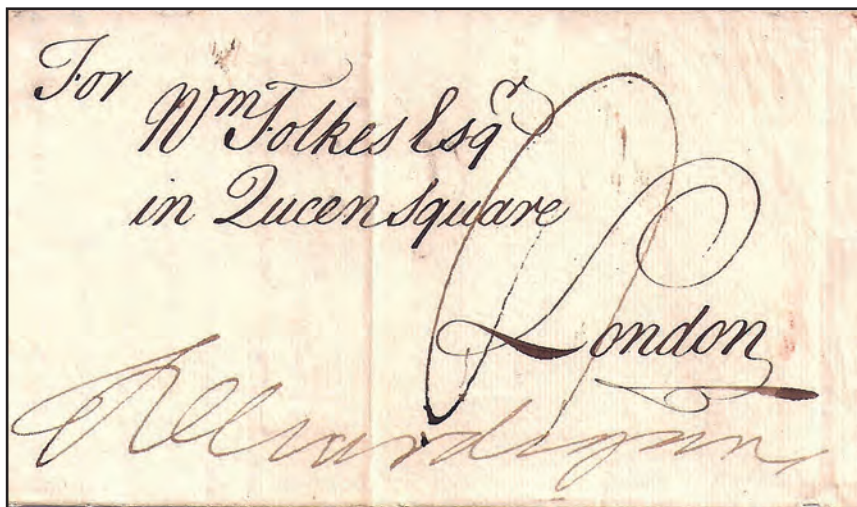 For
Wm Folkes Esqr
in Queen Square
London
Cardigan